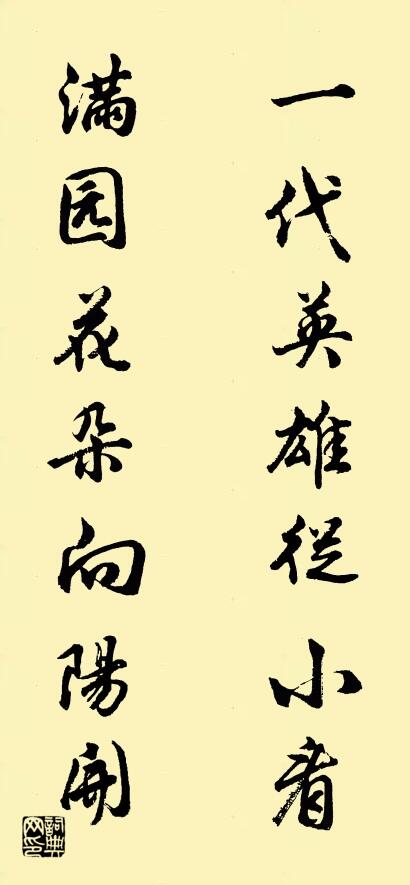 一代英雄從小看
滿园花朵向陽開
詞典
网印